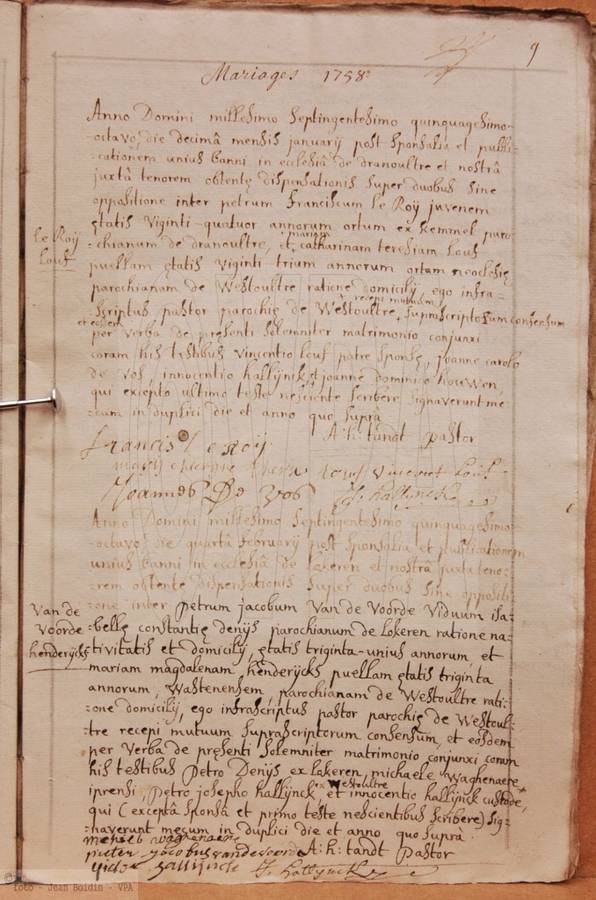 9
Mariages 1758
Anno Domini millesimo septingentesimo quinquagesimo-
-octavo, die decimâ mensis januarij post sponsalia et publi-
-cationem unius banni in ecclesiâ de dranoultre et nostrâ
juxtà tenorem obtentę dispensationis super duobus sine
oppositione inter petrum Franciscum le Roÿ juvenem
ętatis viginti-quatuor annorum ortum ex Kemmel paro-
le Roÿ
Louf
-chianum de dranoultre, et mariam catharinam teresiam Louf
puellam ętatis viginti-trium annorum ortam neoclesię
parochianam de Westoultre ratione domicilij, ego infra-
-scriptus pastor parochię de Westoultre, recepi mutuum supra scriptorum consensum
et eosdem
per verba de pręsenti solemniter matrimonio conjunxi
coram his testibus vincentio Louf patre sponsę, joanne carolo
de vos, innocentio hallÿnck et joanne dominico
qui excepto ultimo teste nesciente scribere signaverunt me-
-cum in duplici die et anno quo suprà
Francis le roij A:h: tandt pastor
vincent Louf
Joannes De Vos J: hallijnck
Anno Domini millesimo septingentesimo quinquagesimo-
-octavo, die quartâ februarij post sponsalia et publicationem
unius banni in ecclesiâ de Lokeren et nostrâ juxtà teno-
-rem obtentę dispensationis super duobus sine oppositi-
-one inter petrum jacobum Van de Voorde viduum isa-
Van de
Voorde
henderijcks
-bellę constantię denijs parochianum de lokeren ratione na-
tivitatis et domicilij, ętatis triginta-unius annorum, et
mariam magdalenam henderijcks puellam ętatis triginta
annorum, Wastenensem, parochianam de Westoultre rati-
-one domicilij, ego infrascriptus pastor parochię de Westoul-
-tre recepi mutuum suprascriptorum consensum, et eosdem
per verba de pręsenti solemniter matrimonio conjunxi coram
his testibus Petro Denijs ex lokeren, michaele Waghenaere
iprensi, Petro josepho hallijnck ex Westoultre et innocentio hallijnck custode,
qui (exceptâ sponsâ et primo teste nescientibus scribere) sig-
-naverunt mecum in duplici die et anno quo suprà
pieter jacobus vandevoorde A:h: tandt Pastor
hallijnck J: hallijnck
foto - Jean Boidin - VPA